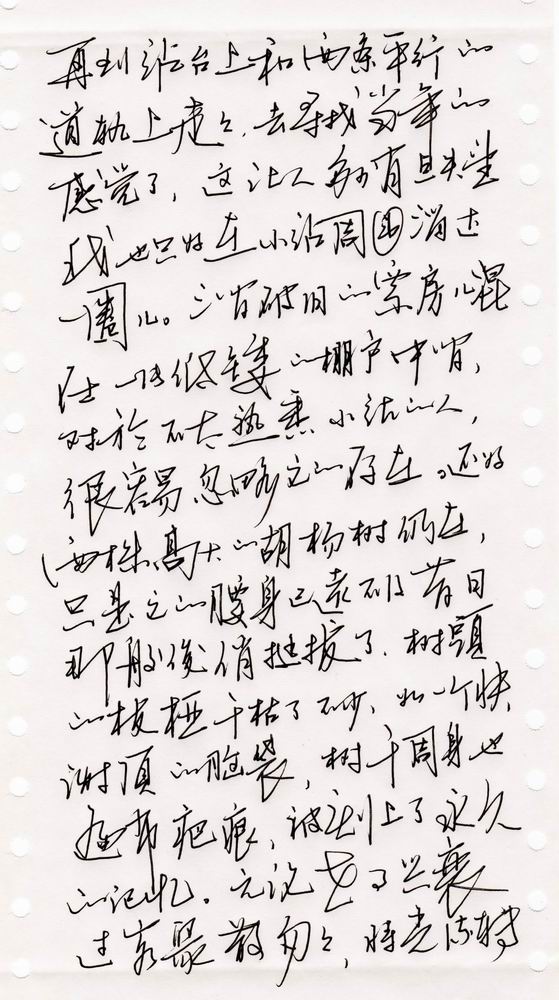 再到站台上和两条平行的
道轨上走走,去寻找当年的
感觉了,这让人多少有且失望
我也只好在小站周围溜达
一圈儿。三间破旧的票房儿混
在一片低矮的棚户中间,
对於不大熟悉小站的人,
很容易忽略它的存在。还好
两株高大的胡杨树仍在,
只是它的腰身已远不及昔日
那般俊俏挺拔了.树頭
的枝桠干枯了不少,如一个快
谢顶的脑袋,树干周身也
遍布疤痕,被刻上了永久
的记忆。无论老了兴衰
过客聚散匆匆,時光流转